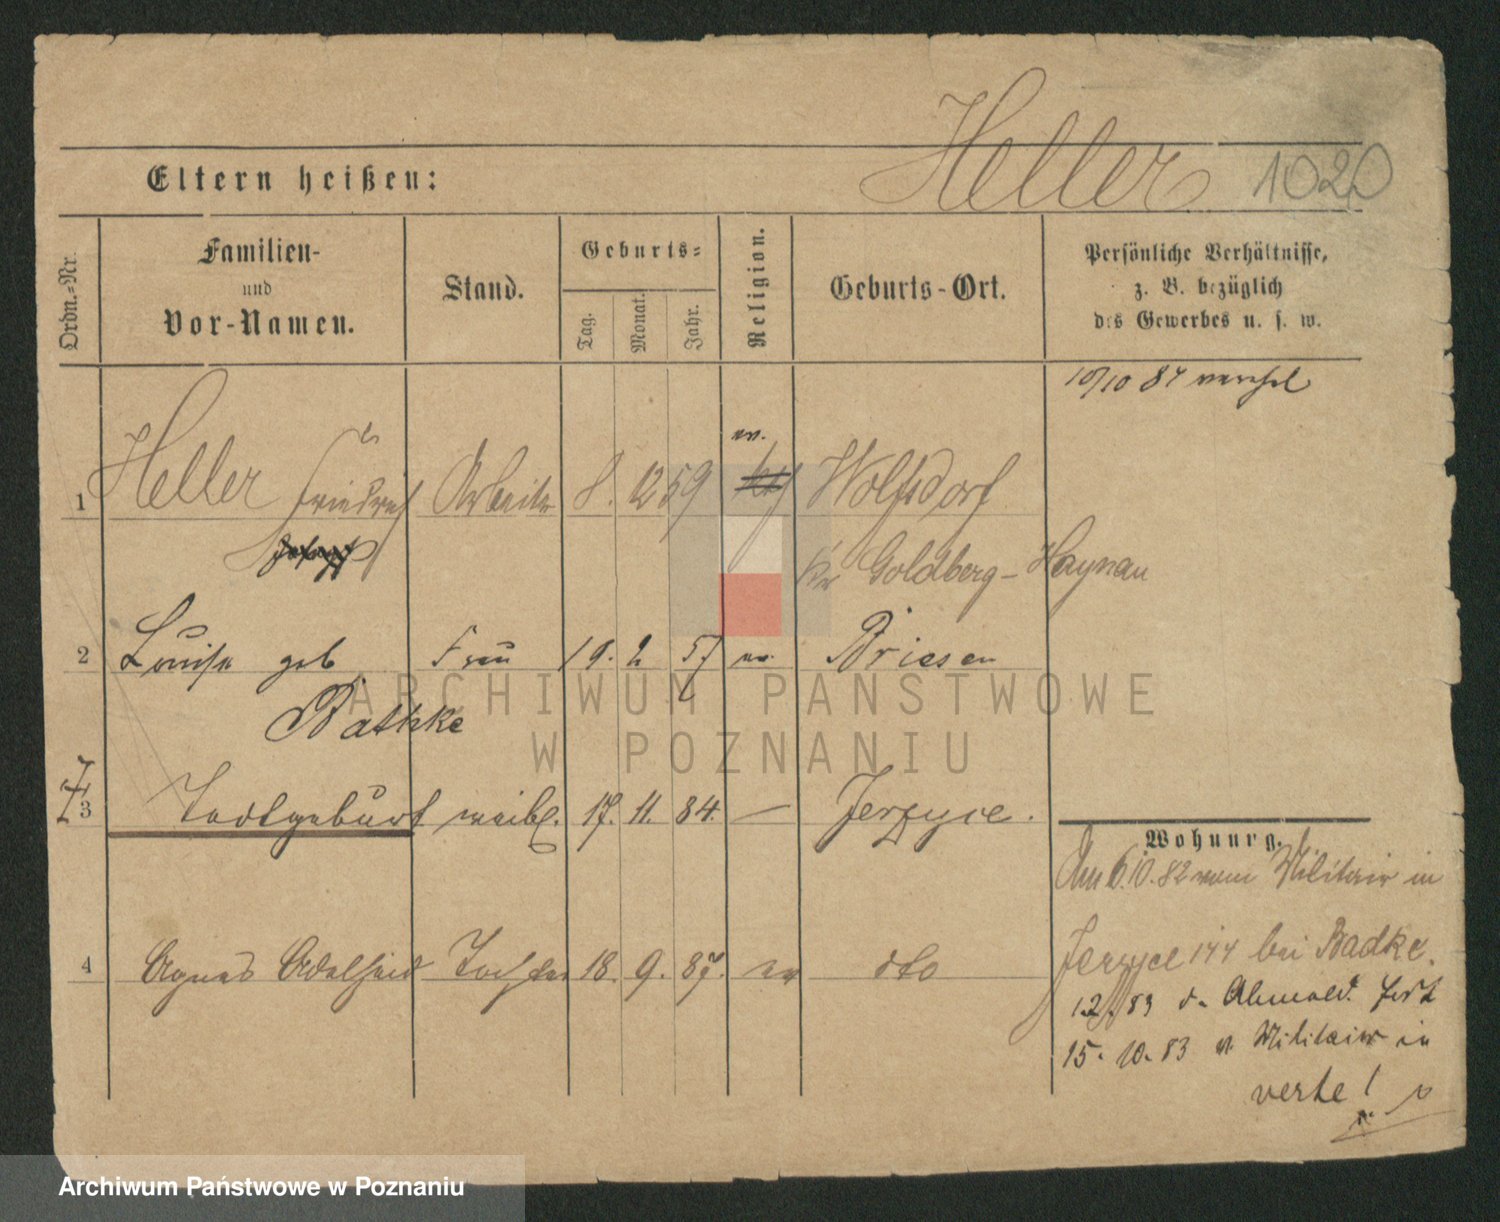 Heller 1020
Eltern heißen:
Ordn.-Nr.
Familien-
und
Vor-Namen.
Stand.
Geburts-
Tag.
Monat.
Jahr.
Religion.
Geburts-Ort.
Persönliche Verhältnisse,
z. B. bezüglich
des Gewerbes u. s. w.
10/10 84
ev.
1 Heller Friedrich Arbeiter 8. 12 59 Wolfsdorf
Kr Goldberg-Haynau
2 Louise geb Frau 19. 2 57 ev. Briesen
Bathke
3 Todtgeburt weibl. 17. 11. 84. — Jerzyce.
Wohnung.
Am 6.10.82 vom Militair in
Jerzyce 144 bei Badke.
4 Agnes Adelheid Tochter 18. 9. 87. ev dto
12. 83
15. 10. 83 v. Militair in
verte!
ARCHIWUM PAŃSTWOWE
W POZNANIU
Archiwum Państwowe w Poznaniu